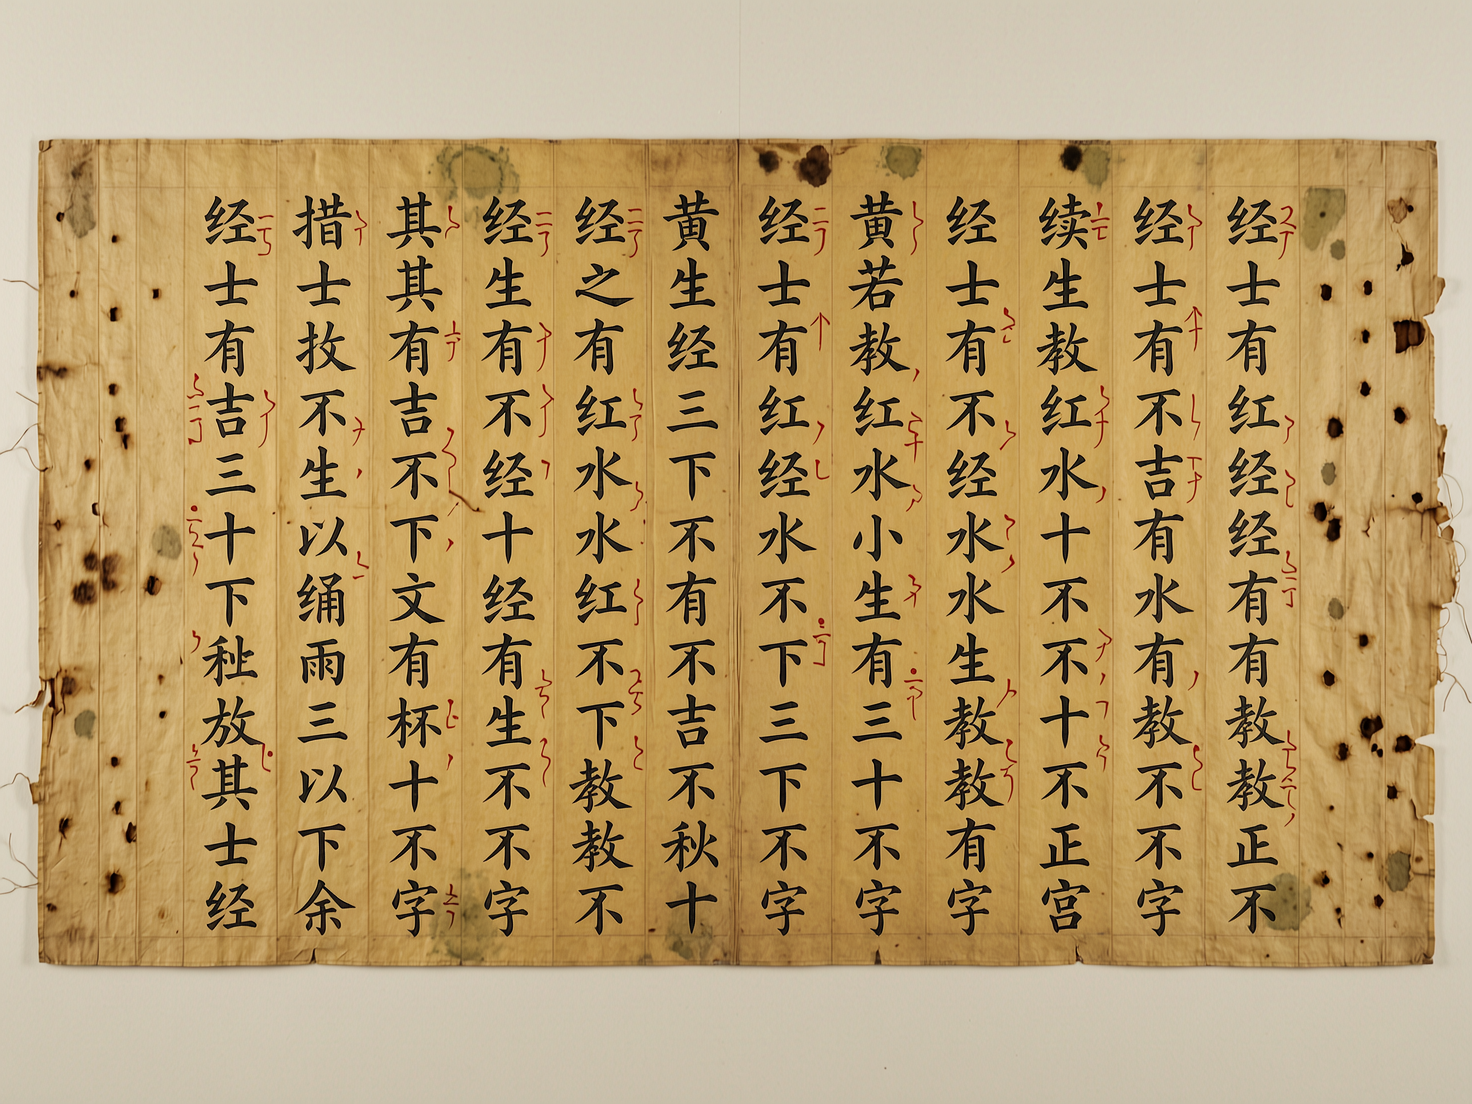 经士有红经经有有教教正不
经士有不吉有水有教不不字
续生教红水十不不十不正宫
经士有不经水水生教教有字
黄若教红水小生有三十不字
经士有红经水不下三下不字
黄生经三下不有不吉不秋十
经之有红水水红不下教教不
经生有不经十经有生不不字
其其有吉不下文有杯十不字
措士不生以雨三以下余
经士有吉三十下放其士经